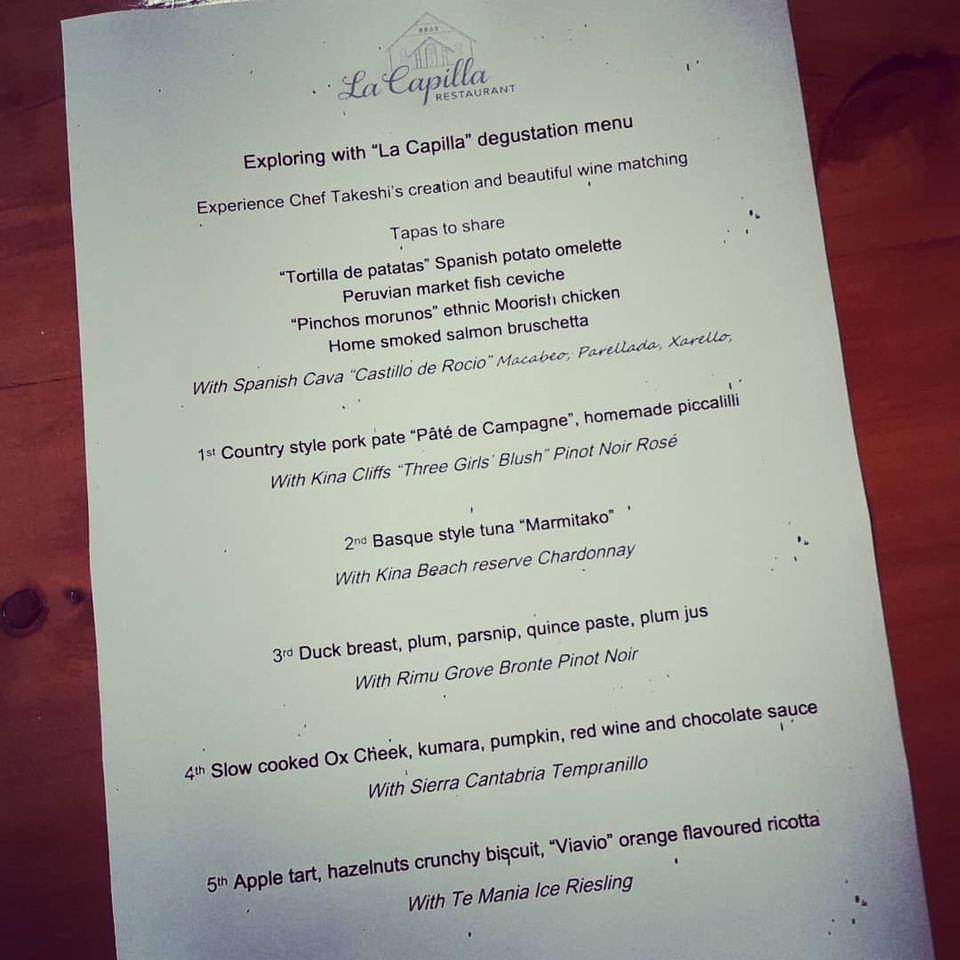 La Capilla
RESTAURANT
Exploring with “La Capilla” degustation menu
Experience Chef Takeshi’s creation and beautiful wine matching
Tapas to share
“Tortilla de patatas” Spanish potato omelette
Peruvian market fish ceviche
“Pinchos morunos” ethnic Moorish chicken
Home smoked salmon bruschetta
With Spanish Cava “Castillo de Rocio” Macabeo, Parellada, Xarello,
1st Country style pork pate “Pâté de Campagne”, homemade piccalilli
With Kina Cliffs “Three Girls’ Blush” Pinot Noir Rosé
2nd Basque style tuna “Marmitako”
With Kina Beach reserve Chardonnay
3rd Duck breast, plum, parsnip, quince paste, plum jus
With Rimu Grove Bronte Pinot Noir
4th Slow cooked Ox Cheek, kumara, pumpkin, red wine and chocolate sauce
With Sierra Cantabria Tempranillo
5th Apple tart, hazelnuts crunchy biscuit, “Viavio” orange flavoured ricotta
With Te Mania Ice Riesling